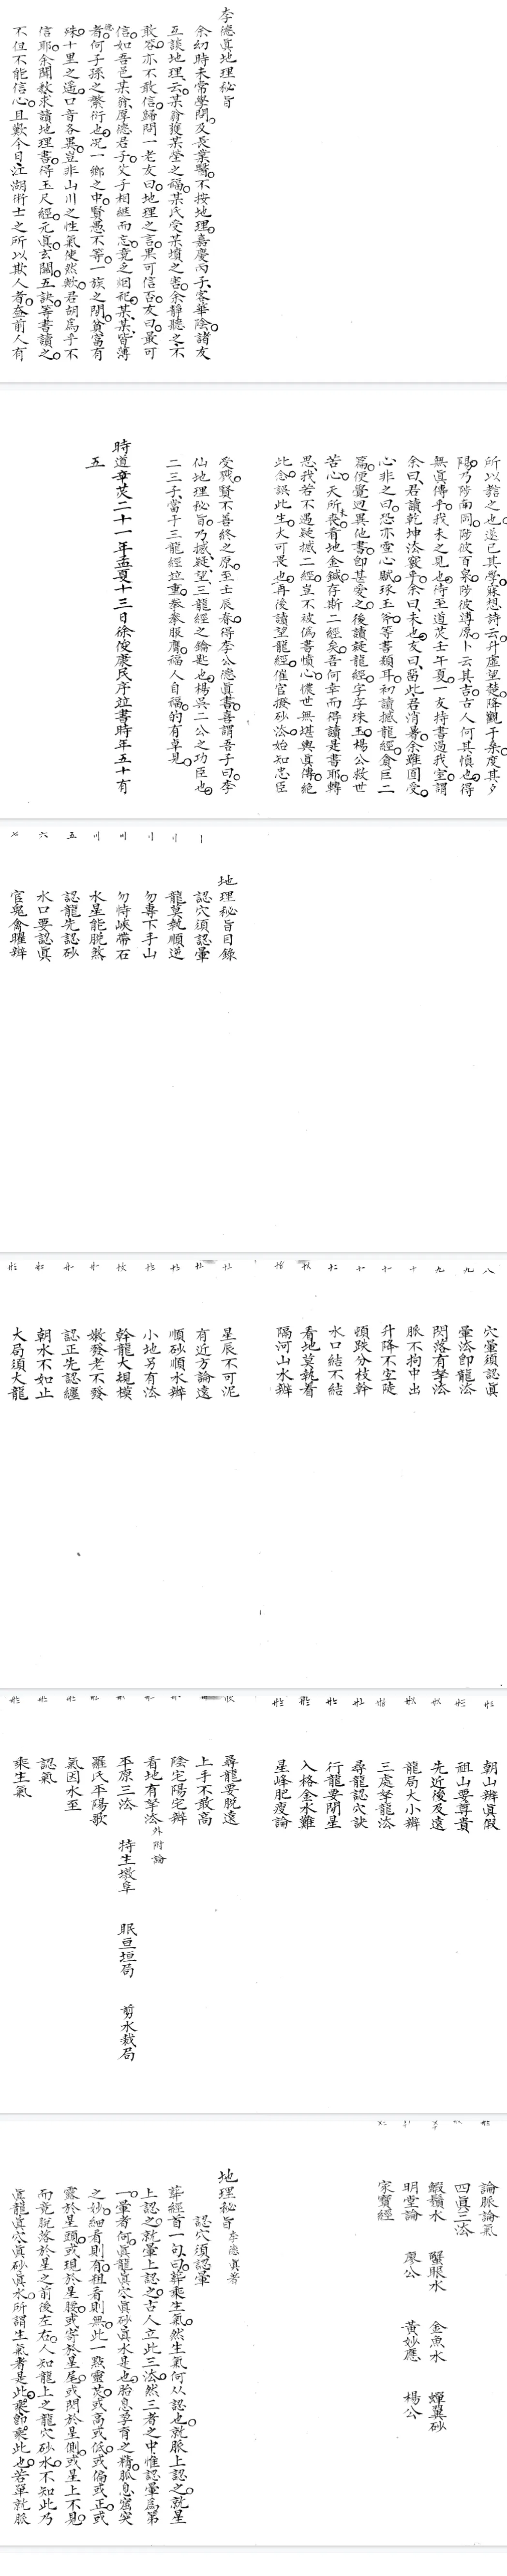 李德眞地理秘旨
余幼時未常學問及長業醫不按地理嘉慶丙子客華陰諸友
互談地理云某翁護某塋之福某氏受某墳之害余靜聽之不
敢答亦不敢信歸問一老友曰地理之言果可信否友曰最可
信如吾邑某翁厚德君子父子相繼而忘竟乏烟祀某某皆薄
德者何子孫之繁衍也况一鄉之中賢愚不等一族之間貧富有
殊十里之遥口音各異豈非山川之性氣使然歟君胡爲乎不
信耶余聞教求讀地理書得玉尺經元眞玄關五訣等書讀之
不但不能信心且歎今日江湖術士之所以欺人者盡前人有
所以誉之也遂已其學
陽乃陟南岡陟彼百泉陟彼溥原卜云其吉古人何其愼也得
無眞傳乎我未之見也待至道光壬午夏一友持書過我室謂
余曰君讀乾坤法竅乎余曰未也友曰曷此君消暑余雖囬受
心非之曰恐亦靈心賦球玉
篇便覺迥異他書卽甚愛之後讀疑龍經字字珠玉楊公救世
苦心天所未喪看地金鍼存斯二經矣吾何幸而得讀是書耶轉
思我若不遇疑撼二經豈不被僞書憤心儂世無堪輿眞傳絶
此念誤此生大可畏也再後讀望龍經催官撥砂法始知忠臣
受戮賢不善終之原至士辰春得李公德眞書喜謂吾子曰李
仙地理秘旨乃撼疑望三龍經之鑰匙也楊吳二公之功臣也
二三子當于三龍經竝重拳拳服膺福人自福的有卓見
時道光二十一年孟夏十三日徐俊康民序竝書時年五十有
五
地理秘旨目錄
認穴須認暈 一
龍莫執順逆
勿專下手山
勿恃峽帶石
水星能脫煞
認龍先認砂 五
水口要認眞 六
官鬼禽曜辨 七
穴暈須認眞 八
暈法卽龍法 九
閃落有挐法 九
脈不拘中出 十
升降不宜陡
頓跌分枝幹
水口結不結
看地莫執着
隔河山水辨
星辰不可泥
有近方論遠
順砂順水辨
小地另有法
幹龍大規模
嫩發老不發
認正先認纏
朝水不如止
大局須大龍
朝山辨眞假
祖山要尊貴
先近後及遠
龍局大小辨
三處挐龍法
尋龍認穴訣
行龍要開星
入格金水難
星峰肥瘦論
尋龍要脫遠
上手不敢高
陰宅陽宅辨
看地有挐法 外附論
平原三法 特生墩阜 眠亘垣局 剪水裁局
羅氏平陽歌
氣因水至
認氣
乘生氣
論脈論氣
四眞三法
蝦鬚水 蟹眼水 金魚水 蟬翼砂
明堂論 廖公 黃妙應 楊公
家寶經
地理秘旨 李德眞著
認穴須認暈
葬經首一句曰葬乘生氣然生氣何从認也就脈上認之就星
上認之就暈上認之古人立此三法然三者之中惟認暈爲第
一暈者何眞龍眞穴眞砂眞水是也胎息孕育之精脈息窟突
之妙細看則有粗看則無此一點靈光或高或低或偏或正或
露於星頭或現於星腰或寄於星尾或閃於星側或星上不見
而竟脫落於星之前後左右人知龍上之龍穴砂水不知此乃
眞龍眞穴眞砂眞水所謂生氣者是此乘卽乘此也若單就脈